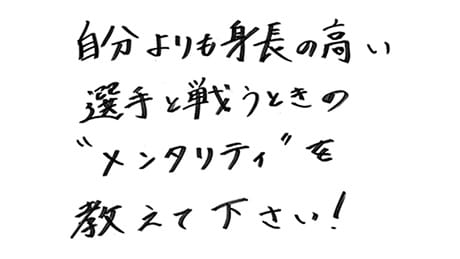 自分よりも身長の高い
選手と戦うときの
"メンタリティ"を
教えて下さい!